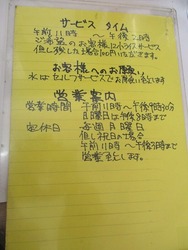 サービス タイム
午前11時 〜 午後2時
ご来店のお客様にライスサービス
但し残した場合100円いただきます。
お客様へのお願い
水はセルフサービスでお願い致します
営業案内
営業時間 午前11時〜午後9時30分
日曜日は午後8時まで
定休日 毎週月曜日
但し祝日の場合
午前11時〜午後3時まで
営業致します。